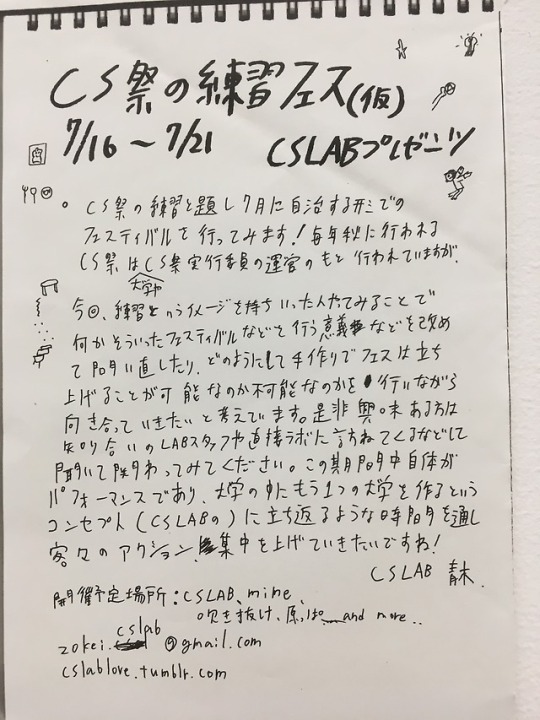 CS祭の練習フェス(仮)
7/16〜7/21 CSLABプレゼンツ
CS祭の練習と題し7月に自治する形での
フェスティバルを行ってみます!毎年秋に行われる
CS祭はCS祭実行委員の運営のもと行われていますが、
大学や
今回、練習というイメージを持ちいった人やってみることで
何かそういったフェスティバルなどを行う意義などを改め
て問い直したり、どのようにして手作りでフェスは立ち
上げることが可能なのか不可能なのかを行いながら
向き合っていきたいと考えています。是非興味ある方は
知り合いのLABスタッフや直接ラボに訪ねてくるなどして
聞いて関わってみてください。この期間中自体が
パフォーマンスであり、大学の中にもう1つの大学を作るという
コンセプト(CSLABの)に立ち返るような時間を通し
客々のアクション、集中を上げていきたいですね!
CSLAB 青木.
開催予定場所:CSLAB、mime、
吹き抜け、原っぱ、...and more..
cslab
zokei.@gmail.com
cslablove.tumblr.com